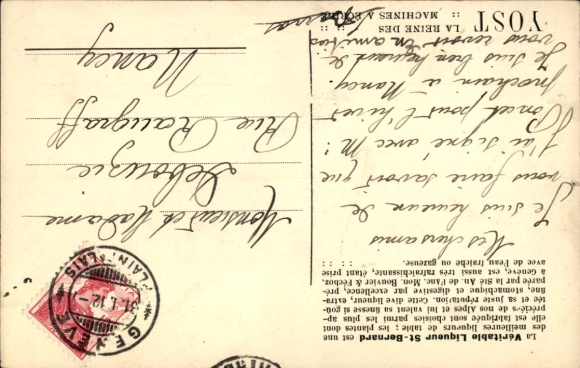 La Véritable Liqueur St-Bernard est une
des meilleures liqueurs de table; les plantes dont
elle est fabriquée sont choisies parmi les plus ap-
préciées de nos Alpes et lui valent sa finesse si goû-
tée et sa juste réputation. Cette dive liqueur, extra-
fine, stomachique et digestive par excellence, pré-
parée par la Sté An. de l'Anc. Mon. Bouvier & Réchoz,
à Genève, est aussi très rafraîchissante, étant prise
avec de l'eau fraîche ou gazeuse.
Mes chers amis
Je suis heureux de
vous faire savoir que
j'ai signé avec M.
Poncet pour l'hiver
prochain à Nancy.
Je suis bien heureux de
vous revoir En amitiés
YOST
LA REINE DES
MACHINES À ÉCRIRE
Monsieur et Madame
Rue Raugraff
Nancy
GENÈVE
PLAINPALAIS
31.I.12